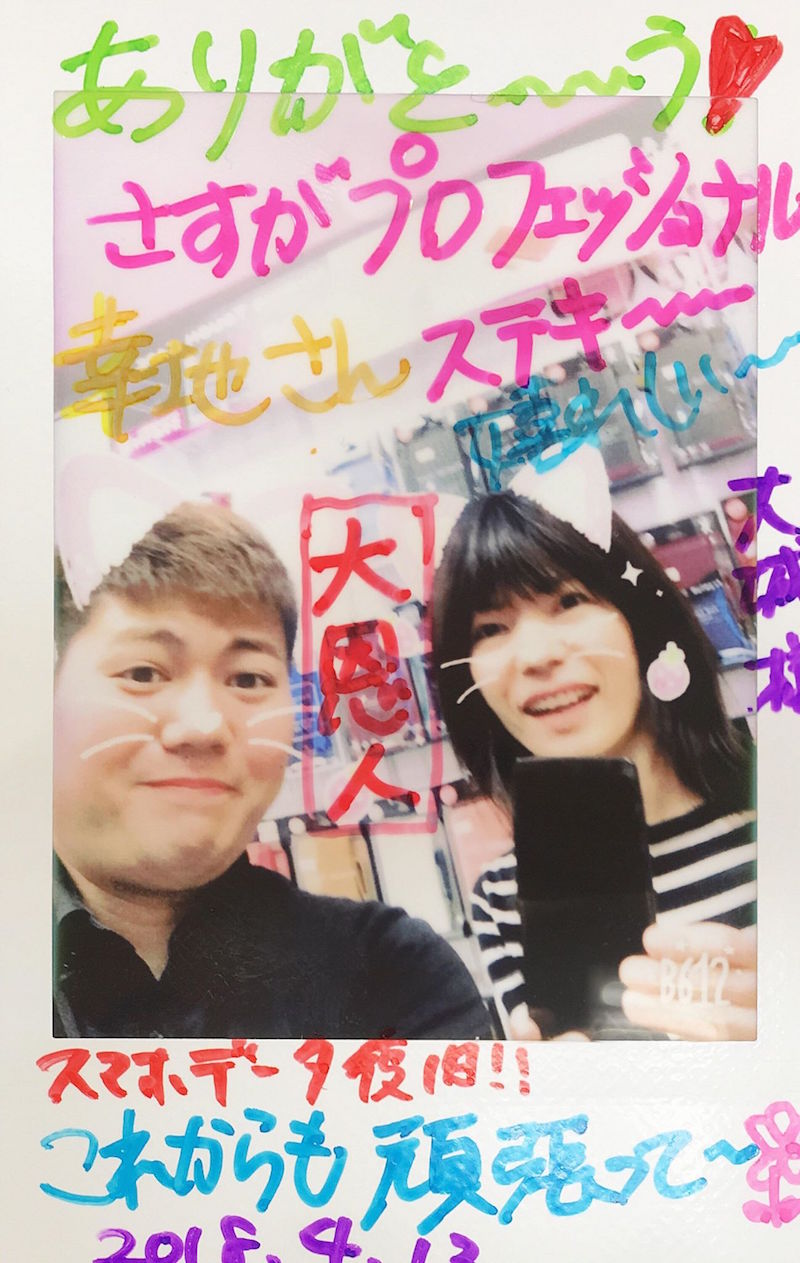 ありがと〜〜う
さすがプロフェッショナル
幸地さん ステキ〜
嬉れしい〜
大城様
大恩人
B612
スマホデータ復旧!!
これからも頑張って〜
2018.4.13